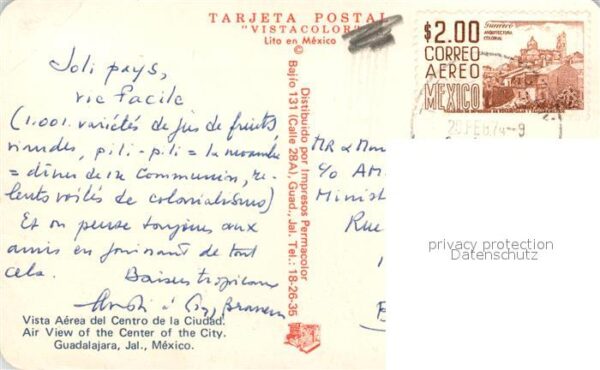 TARJETA POSTAL
"VISTACOLOR"
Lito en México
©
$2.00
CORREO
AEREO
MEXICO
Guerrero
ARQUITECTURA
COLONIAL
Joli pays,
vie facile
(1.001 variétés de jus de fruits,
viandes, pili-pili = la
= dîner de 1re Communion, re-
lents voilés de colonialisme)
Et on pense toujours aux
amis en jouissant de tout
cela.
Baisers tropicaux
Distribuido por Impresos Permacolor
Bajío 131 (Calle 28A), Guad., Jal. Tel.: 18-26-35
MR &
c/o AM
Minist
Rue
privacy protection
Datenschutz
Vista Aérea del Centro de la Ciudad.
Air View of the Center of the City.
Guadalajara, Jal., México.